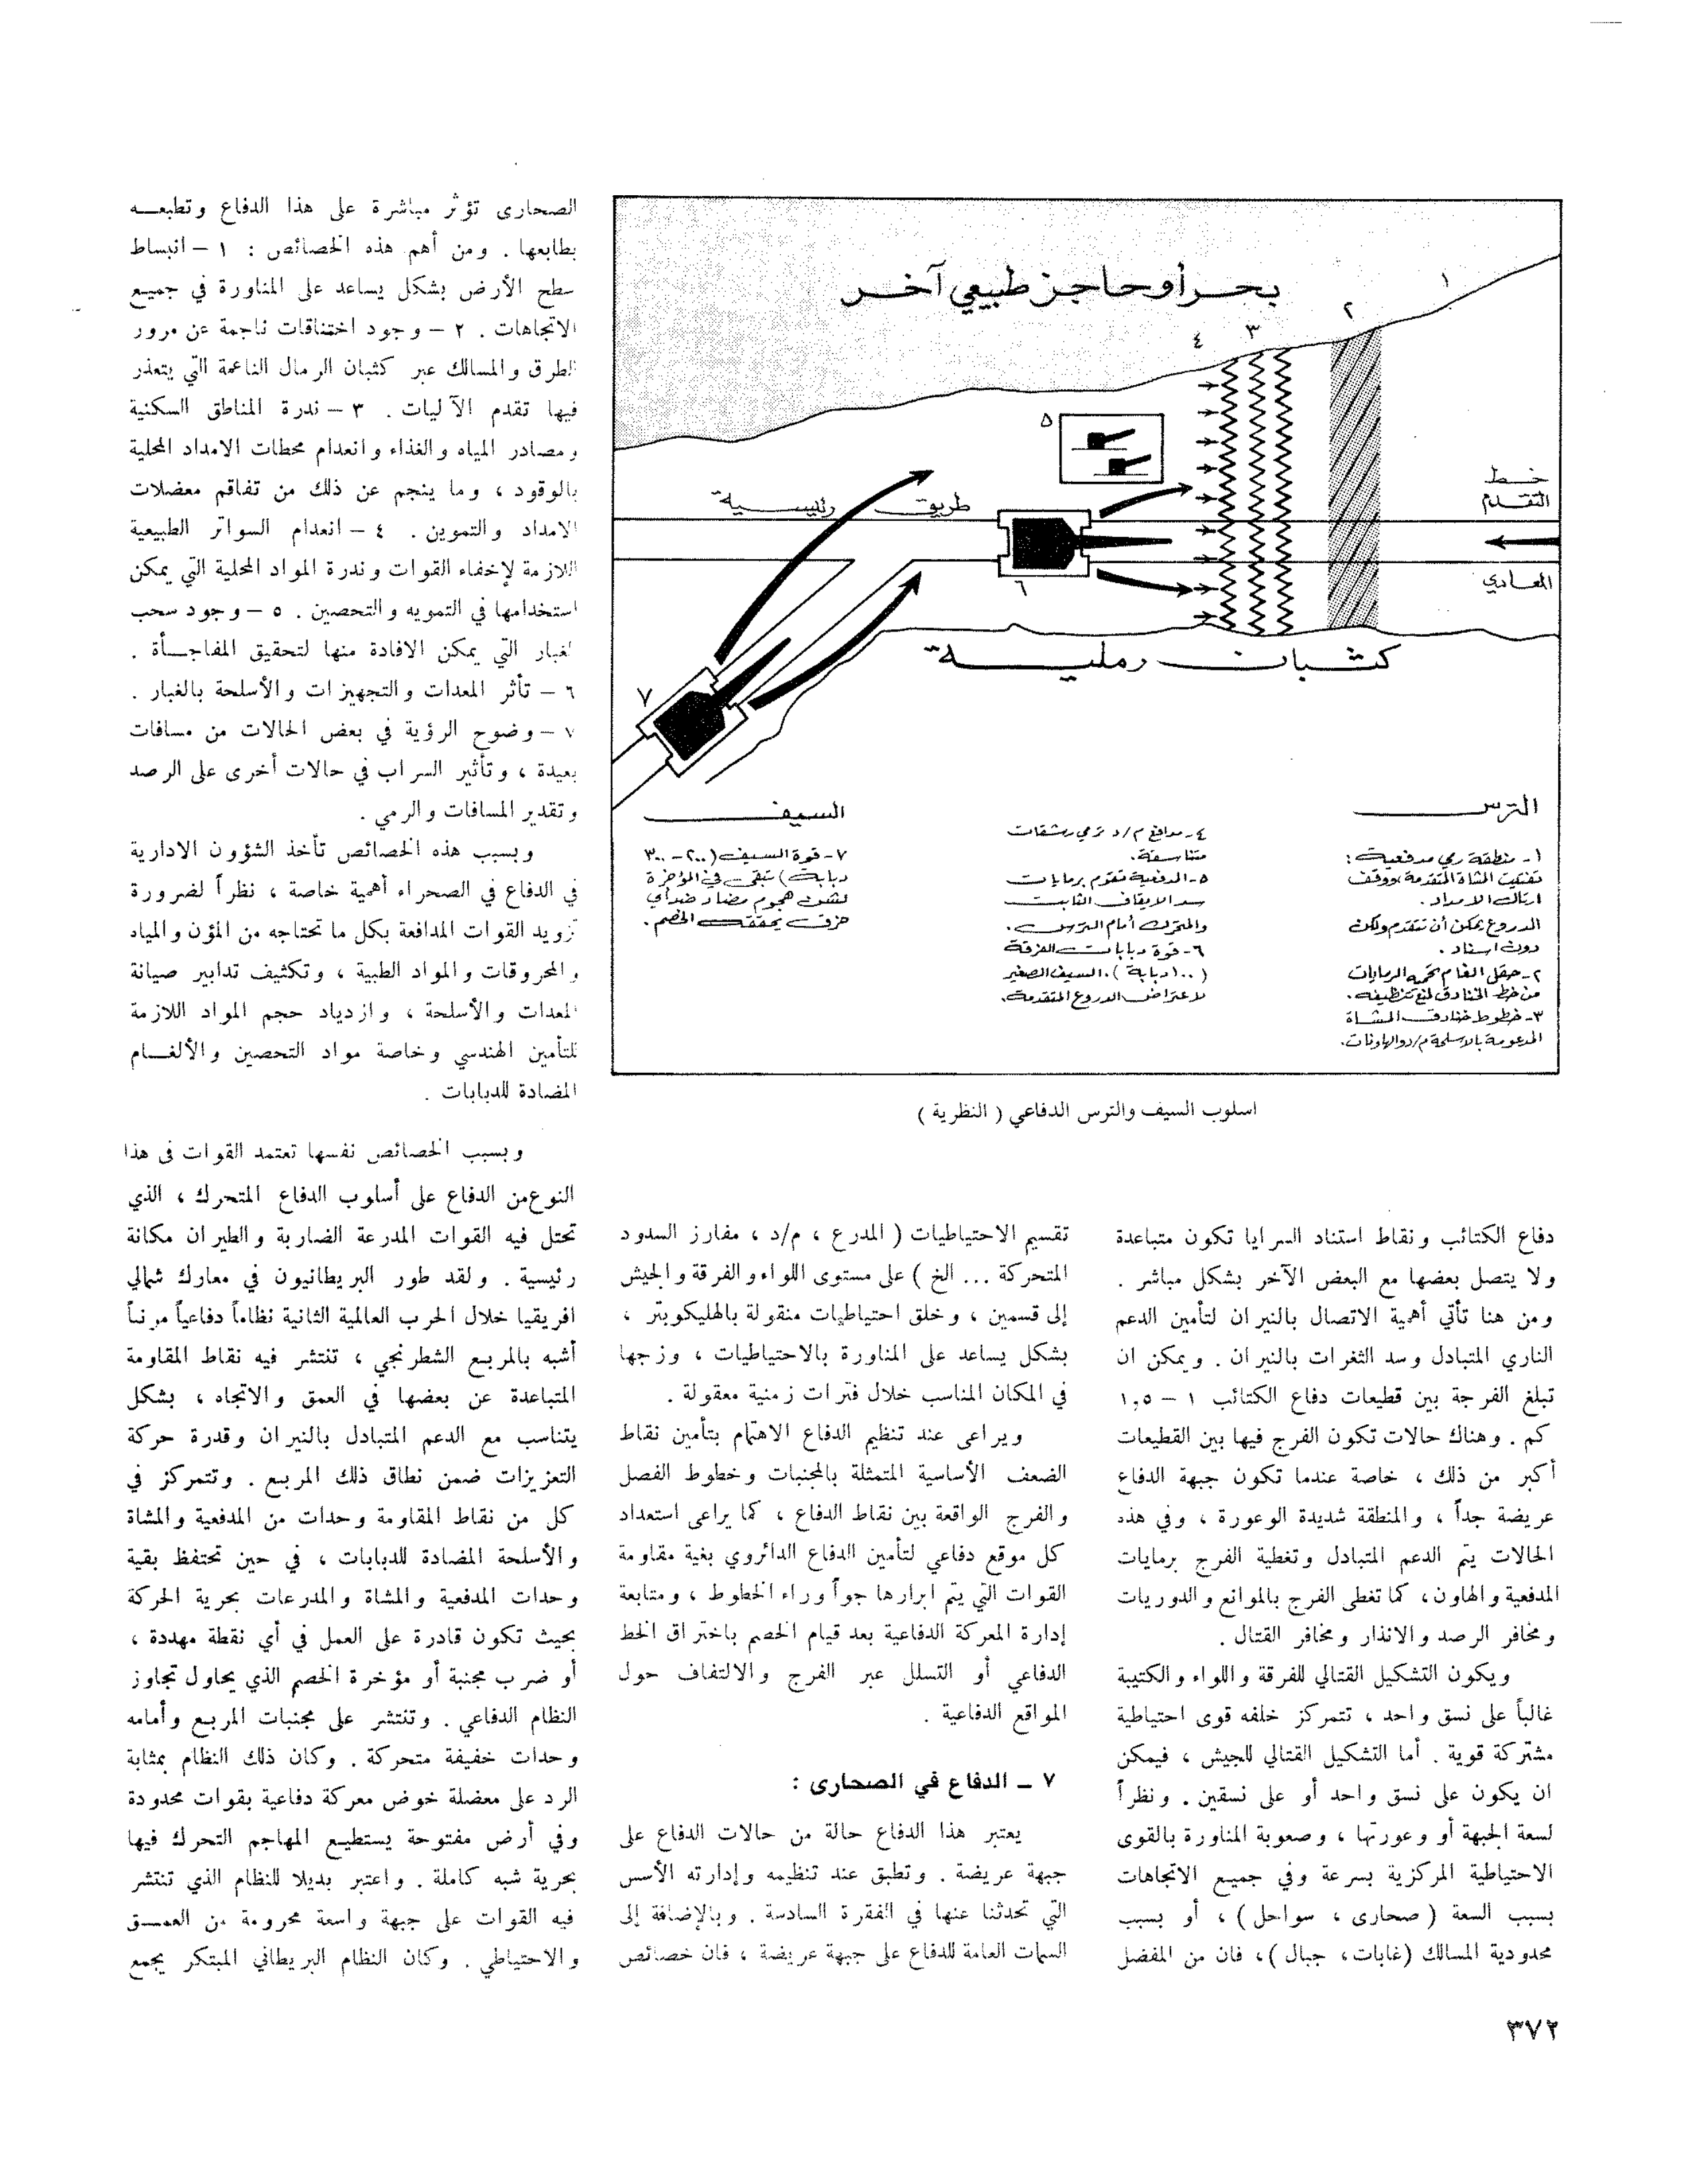 بحر أو حاجز طبيعي آخر
١
٢
٣
٤
٥
خط
التقدم
المعادي
طريق رئيسية
٦
كثبان رملية
٧
الترس
١- منطقة رمي مدفعية :
تفتيت المشاة المتقدمة ووقف
ارتال الامداد .
الدروع يمكن أن تتقدم ولكن
دون اسناد .
٢- حقل الغام تحميه الرمايات
من خط الخنادق لمنع تنظيفه .
٣- خطوط خنادق المشاة
المدعومة بالاسلحة م/د والهاونات .
٤- مدافع م/د ترمي رشقات
متناسقة .
٥- المدفعية تقوم برمايات
سد الايقاف الثابت
والمتحرك أمام الترس .
٦- قوة دبابات الفرقة
(١٠٠ دبابة) ، السيف الصغير
لاعتراض الدروع المتقدمة .
السيف
٧- قوة السيف (٢٠٠ - ٣٠٠
دبابة) تبقى في المؤخرة
لشن هجوم مضاد ضد أي
خرق يحققه الخصم .
اسلوب السيف والترس الدفاعي ( النظرية )
دفاع الكتائب ونقاط استناد السرايا تكون متباعدة
ولا يتصل بعضها مع البعض الآخر بشكل مباشر .
ومن هنا تأتي أهمية الاتصال بالنيران لتأمين الدعم
الناري المتبادل وسد الثغرات بالنيران . ويمكن ان
تبلغ الفرجة بين قطيعات دفاع الكتائب ١ – ١,٥
كم . وهناك حالات تكون الفرج فيها بين القطيعات
أكبر من ذلك ، خاصة عندما تكون جبهة الدفاع
عريضة جداً ، والمنطقة شديدة الوعورة ، وفي هذه
الحالات يتم الدعم المتبادل وتغطية الفرج برمايات
المدفعية والهاون ، كما تغطى الفرج بالموانع والدوريات
ومخافر الرصد والانذار ومخافر القتال .
ويكون التشكيل القتالي للفرقة واللواء والكتيبة
غالباً على نسق واحد ، تتمركز خلفه قوى احتياطية
مشتركة قوية . أما التشكيل القتالي للجيش ، فيمكن
ان يكون على نسق واحد أو على نسقين . ونظراً
لسعة الجبهة أو وعورتها ، وصعوبة المناورة بالقوى
الاحتياطية المركزية بسرعة وفي جميع الاتجاهات
بسبب السعة ( صحارى ، سواحل ) ، أو بسبب
محدودية المسالك (غابات ، جبال ) ، فان من المفضل
تقسيم الاحتياطيات ( المدرع ، م/د ، مفارز السدود
المتحركة ... الخ ) على مستوى اللواء والفرقة والجيش
إلى قسمين ، وخلق احتياطيات منقولة بالهليكوبتر ،
بشكل يساعد على المناورة بالاحتياطيات ، وزجها
في المكان المناسب خلال فترات زمنية معقولة .
ويراعى عند تنظيم الدفاع الاهتمام بتأمين نقاط
الضعف الأساسية المتمثلة بالمجنبات وخطوط الفصل
والفرج الواقعة بين نقاط الدفاع ، كما يراعى استعداد
كل موقع دفاعي لتأمين الدفاع الدائروي بغية مقاومة
القوات التي يتم ابرارها جواً وراء الخطوط ، ومتابعة
إدارة المعركة الدفاعية بعد قيام الخصم باختراق الخط
الدفاعي أو التسلل عبر الفرج والالتفاف حول
المواقع الدفاعية .
٧ – الدفاع في الصحارى :
يعتبر هذا الدفاع حالة من حالات الدفاع على
جبهة عريضة . وتطبق عند تنظيمه وإدارته الأسس
التي تحدثنا عنها في الفقرة السادسة . وبالإضافة إلى
السمات العامة للدفاع على جبهة عريضة ، فان خصائص
الصحارى تؤثر مباشرة على هذا الدفاع وتطبعه
بطابعها . ومن أهم هذه الخصائص : ١ – انبساط
سطح الأرض بشكل يساعد على المناورة في جميع
الاتجاهات . ٢ – وجود اختناقات ناجمة عن مرور
الطرق والمسالك عبر كثبان الرمال الناعمة التي يتعذر
فيها تقدم الآليات . ٣ – ندرة المناطق السكنية
ومصادر المياه والغذاء وانعدام محطات الامداد المحلية
بالوقود ، وما ينجم عن ذلك من تفاقم معضلات
الامداد والتموين . ٤ – انعدام السواتر الطبيعية
اللازمة لإخفاء القوات وندرة المواد المحلية التي يمكن
استخدامها في التمويه والتحصين . ٥ – وجود سحب
الغبار التي يمكن الافادة منها لتحقيق المفاجأة .
٦ – تأثر المعدات والتجهيزات والأسلحة بالغبار .
٧ – وضوح الرؤية في بعض الحالات من مسافات
بعيدة ، وتأثير السراب في حالات أخرى على الرصد
وتقدير المسافات والرمي .
وبسبب هذه الخصائص تأخذ الشؤون الادارية
في الدفاع في الصحراء أهمية خاصة ، نظراً لضرورة
تزويد القوات المدافعة بكل ما تحتاجه من المؤن والمياد
والمحروقات والمواد الطبية ، وتكثيف تدابير صيانة
المعدات والأسلحة ، وازدياد حجم المواد اللازمة
للتأمين الهندسي وخاصة مواد التحصين والألغام
المضادة للدبابات .
وبسبب الخصائص نفسها تعتمد القوات في هذا
النوع من الدفاع على أسلوب الدفاع المتحرك ، الذي
تحتل فيه القوات المدرعة الضاربة والطيران مكانة
رئيسية . ولقد طور البريطانيون في معارك شمالي
افريقيا خلال الحرب العالمية الثانية نظاماً دفاعياً مرناً
أشبه بالمربع الشطرنجي ، تنتشر فيه نقاط المقاومة
المتباعدة عن بعضها في العمق والاتجاه ، بشكل
يتناسب مع الدعم المتبادل بالنيران وقدرة حركة
التعزيزات ضمن نطاق ذلك المربع . وتتمركز في
كل من نقاط المقاومة وحدات من المدفعية والمشاة
والأسلحة المضادة للدبابات ، في حين تحتفظ بقية
وحدات المدفعية والمشاة والمدرعات بحرية الحركة
بحيث تكون قادرة على العمل في أي نقطة مهددة ،
أو ضرب مجنبة أو مؤخرة الخصم الذي يحاول تجاوز
النظام الدفاعي . وتنتشر على مجنبات المربع وأمامه
وحدات خفيفة متحركة . وكان ذلك النظام بمثابة
الرد على معضلة خوض معركة دفاعية بقوات محدودة
وفي أرض مفتوحة يستطيع المهاجم التحرك فيها
بحرية شبه كاملة . واعتبر بديلا للنظام الذي تنتشر
فيه القوات على جبهة واسعة محرومة من العمق
والاحتياطي . وكان النظام البريطاني المبتكر يجمع
٣٧٢